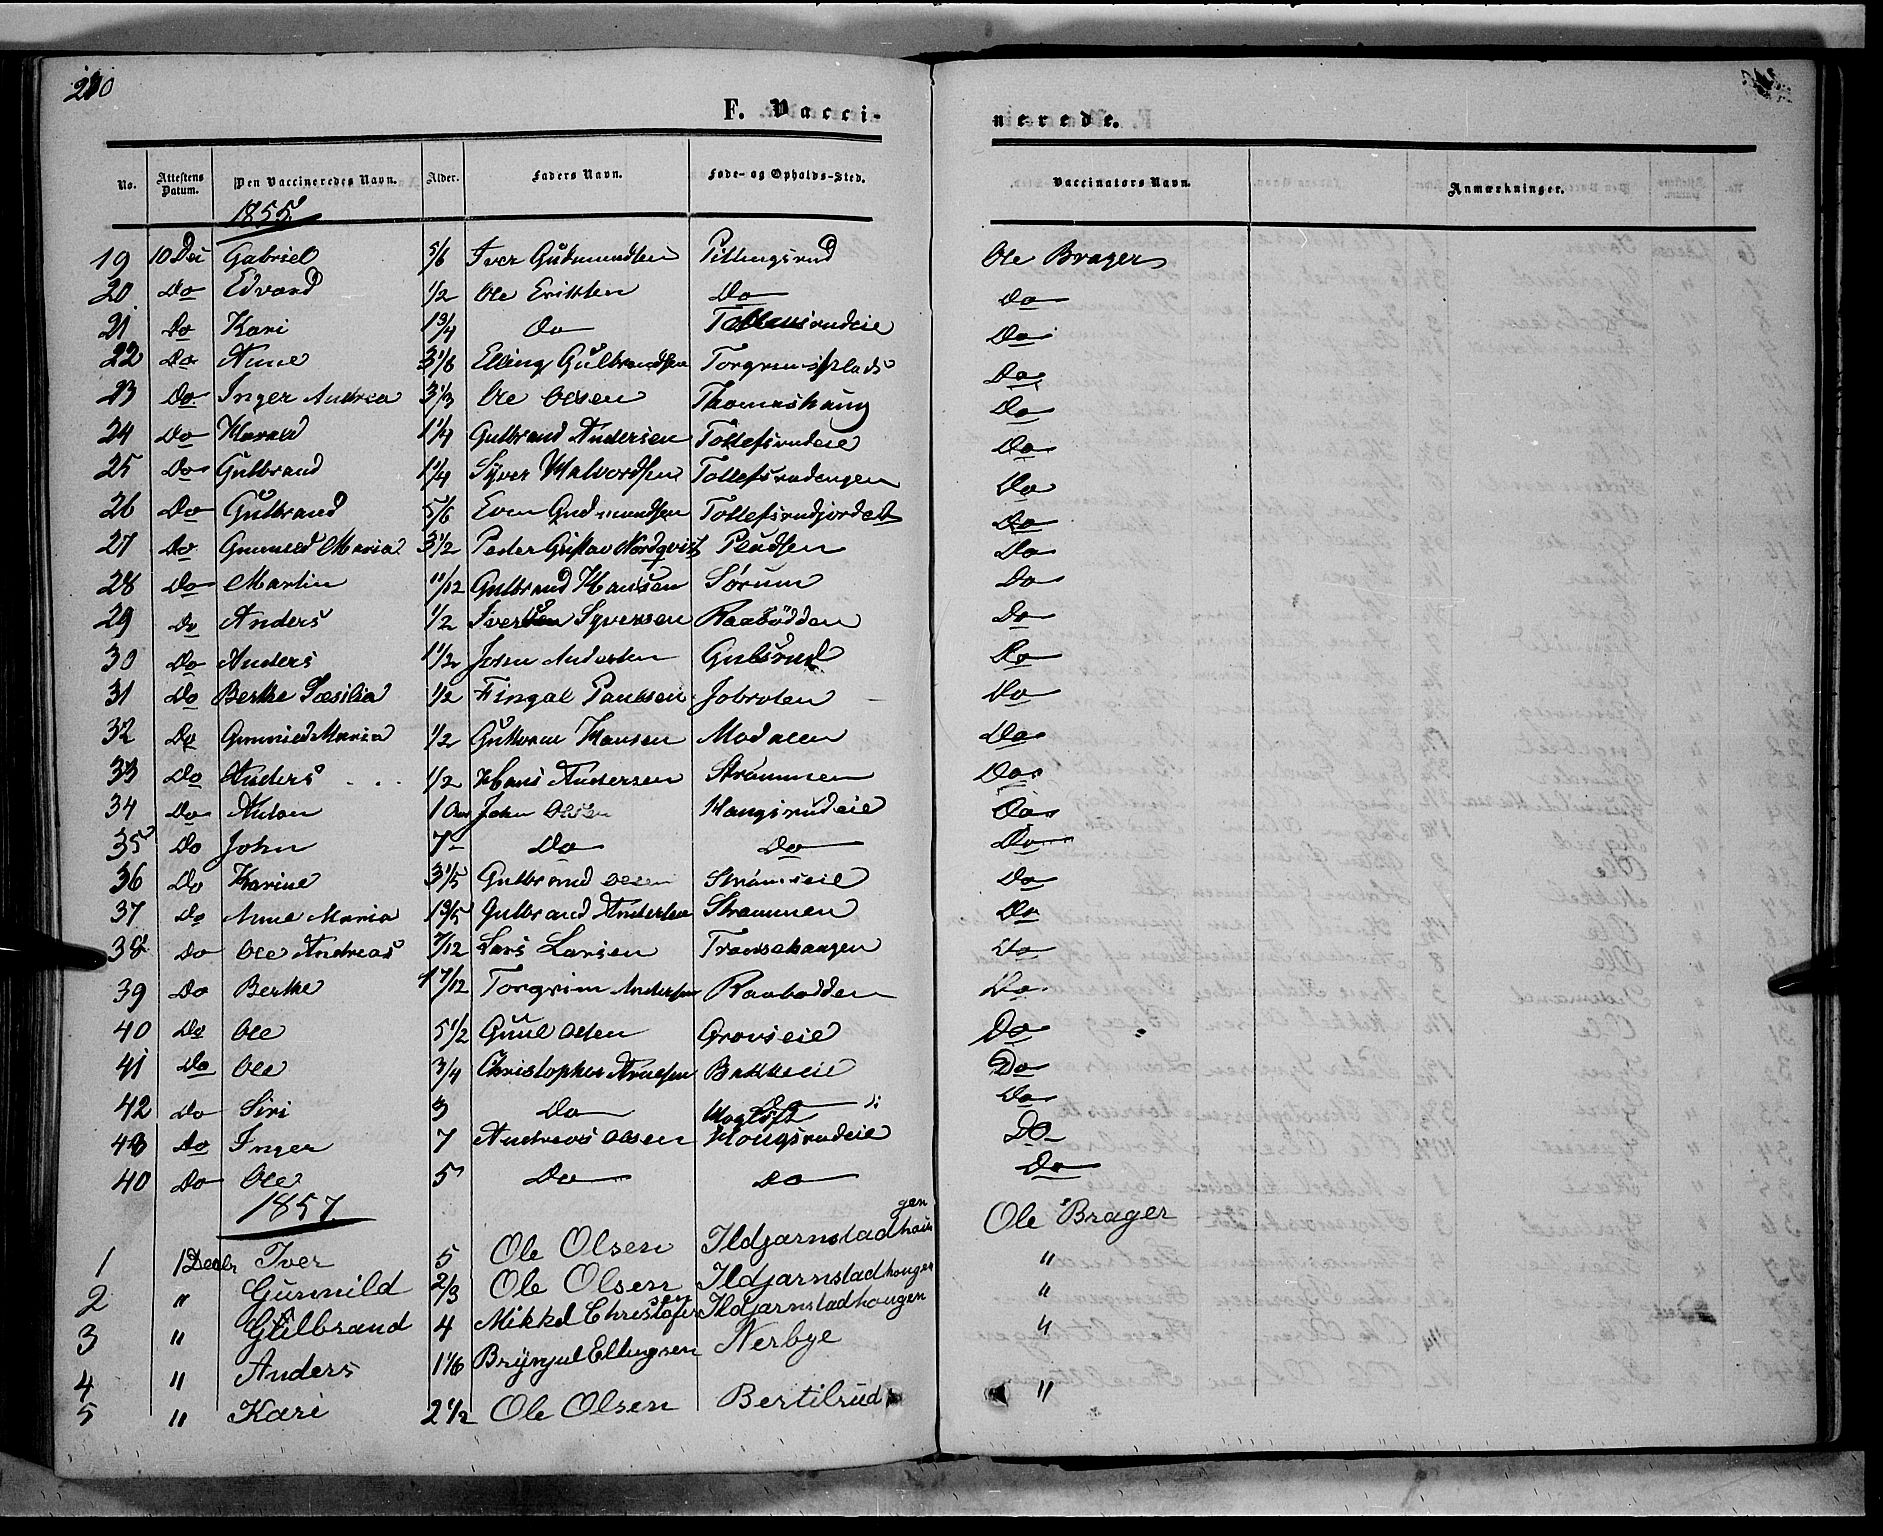 F. Vacci-
nerede.
No. Attestens Datum. Den Vaccineredes Navn. Alder. Faders Navn. Føde- og Opholds-Sted. Vaccinatørs Navn. Anmærkninger.
1855
19 10 Gabriel 5/6 Iver Gudmundsen Ole Brager
20 Do Edvard 1/2 Ole Eriksen Do Do
21 Do Kari 1 3/4 Do Do
22 Do Anne 3 1/6 Elling Gulbrandsen Do
23 Do Inger Andrea 3 1/3 Ole Olsen Thomashaug Do
24 Do 1 1/4 Gulbrand Andersen Tollefsrudeie Do
25 Do Gulbrand 1 1/4 Syver Halvordsen Tollefsrudengen Do
26 Do Gulbrand 5/6 Even Gudmundsen Tollefsrudjordet Do
27 Do Gunnild Maria 3 1/2 Peder Gustav Nordqvist Do
28 Do Martin 11/12 Gulbrand Hansen Sørum Do
29 Do Anders 1/2 Syversen Raabödden Do
30 Do Anders 1 1/2 John Andersen Gulsrud Do
31 Do Berthe 1/2 Fingal Paulsen Jobroten Do
32 Do Gunnild Maria 1/2 Hansen Modalen Do
33 Do Anders 1/2 Hans Andersen Strømmen Do
34 Do Anton 1 Aar John Olsen Haugsrudeie Do
35 Do John 7 Do Do Do
36 Do Karine 3 1/5 Gulbrand Olsen Do
37 Do Anne Maria 1 3/5 Gulbrand Andersen Strømmen Do
38 Do Ole Andreas 7/12 Lars Larsen Do
39 Do Berthe 1 7/12 Torgrim Andersen Raabødden Do
40 Do Ole 5 1/2 Guul Olsen Grovseie Do
41 Do Ole 3/4 Christopher Arnesen Bakkeeie Do
42 Do Siri 3 Do Do Do
43 Do Inger 7 Andreas Olsen Haugsrudeie Do
40 Do Ole 5 Do Do Do
1857.
Ole Brager
1 1 Decbr Iver 5 Ole Olsen Ildjarnstadhaugen "
2 " Gunnild 2/3 Ole Olsen Ildjarnstadhougen "
3 " Gulbrand 4 Mikkel Christofersen Ildjarnstadhougen "
4 " Anders 1 1/6 Brynjul Ellingsen Nerbye
5 " Kari 2 1/2 Ole Olsen Bertilrud "